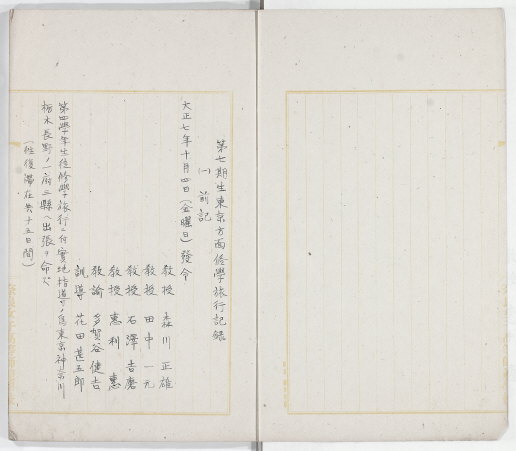 第七期生東京方面修學旅行記録
(一) 前記
大正七年十月四日(金曜日)發令
教授 森川正雄
教授 田中一元
教授 石澤吉磨
教授 惠利惠
教諭 多賀谷健吉
訓導 花田甚五郎
第四學年生徒修學旅行ニ付實地指導ノ爲東京神奈川
栃木長野ノ一府三縣ヘ出張ヲ命ズ
(往復滞在共十五日間)